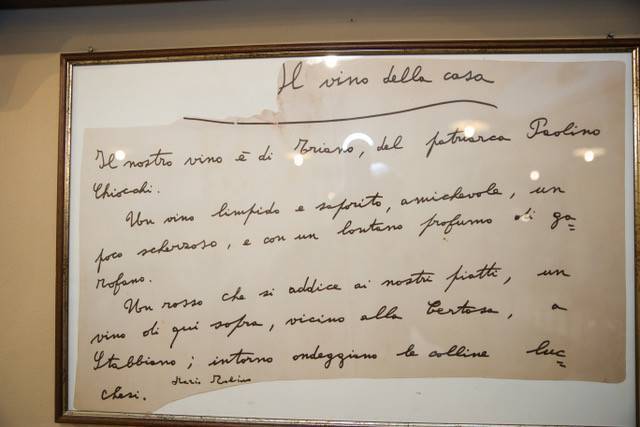 Il vino della casa
Il nostro vino è di Triano, del patriarca Paolino
Chiocchi.
Un vino limpido e saporito, amichevole, un
poco scherzoso, e con un lontano profumo di ga=
rofano.
Un rosso che si addice ai nostri piatti, un
vino di qui sopra, vicino alla Certosa, a
Stabbiano; intorno ondeggiano le colline luc=
chesi. Mario Tobino